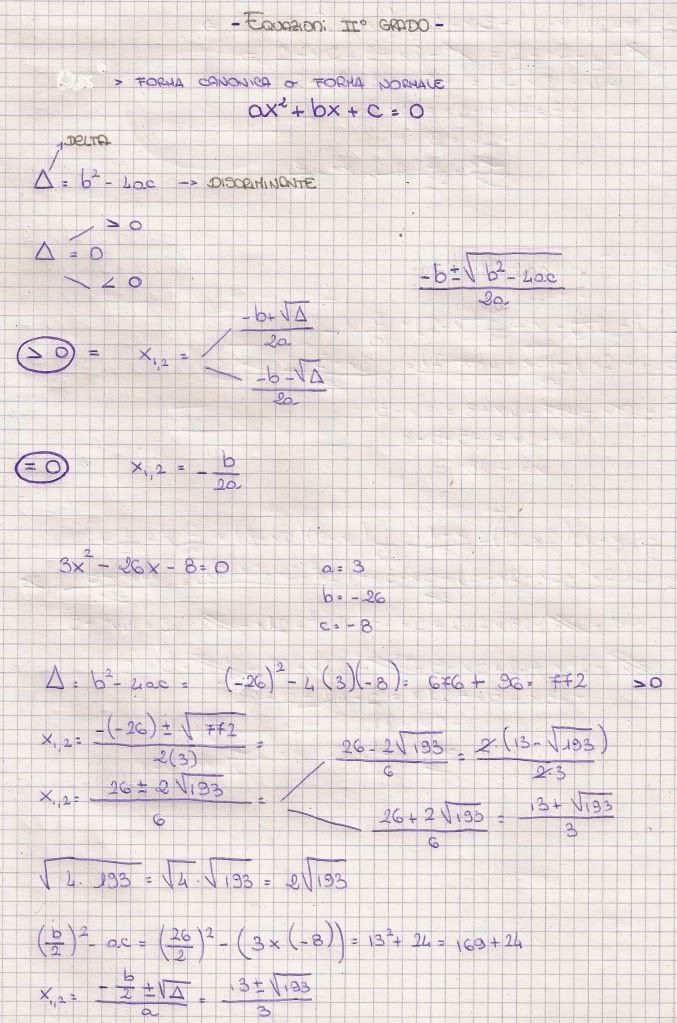 - EQUAZIONI II° GRADO -
> FORMA CANONICA o FORMA NORMALE
ax² + bx + c = 0
DELTA
Δ = b² - 4ac -> DISCRIMINANTE
> 0
Δ = 0
< 0
-b ± √(b² - 4ac) / 2a
> 0 = x₁,₂ =
-b + √Δ / 2a
-b - √Δ / 2a
= 0 x₁,₂ = - b / 2a
3x² - 26x - 8 = 0 a = 3
b = -26
c = -8
Δ = b² - 4ac = (-26)² - 4(3)(-8) = 676 + 96 = 772 > 0
x₁,₂ = -(-26) ± √772 / 2(3) =
26 - 2√193 / 6 = 2·(13 - √193) / 2·3
x₁,₂ = 26 ± 2√193 / 6 =
26 + 2√193 / 6 = 13 + √193 / 3
√(4 · 193) = √4 · √193 = 2√193
(b/2)² - ac = (26/2)² - (3 x (-8)) = 13² + 24 = 169 + 24
x₁,₂ = -b/2 ± √Δ / a = 13 ± √193 / 3